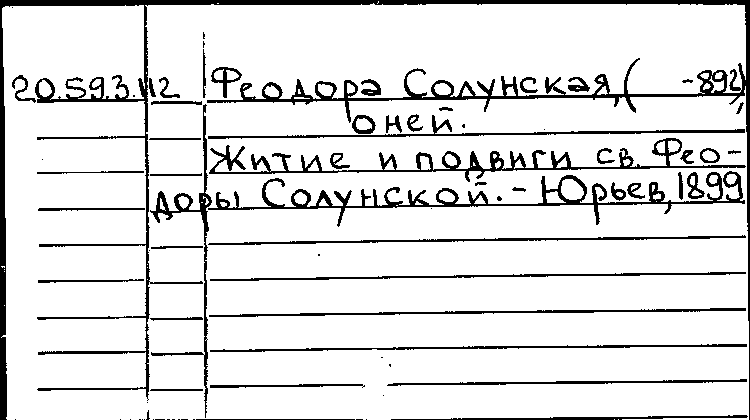 20.59.3.112 Феодора Солунская, ( -892),
о ней.
Житие и подвиги св. Фео-
доры Солунской. - Юрьев, 1899